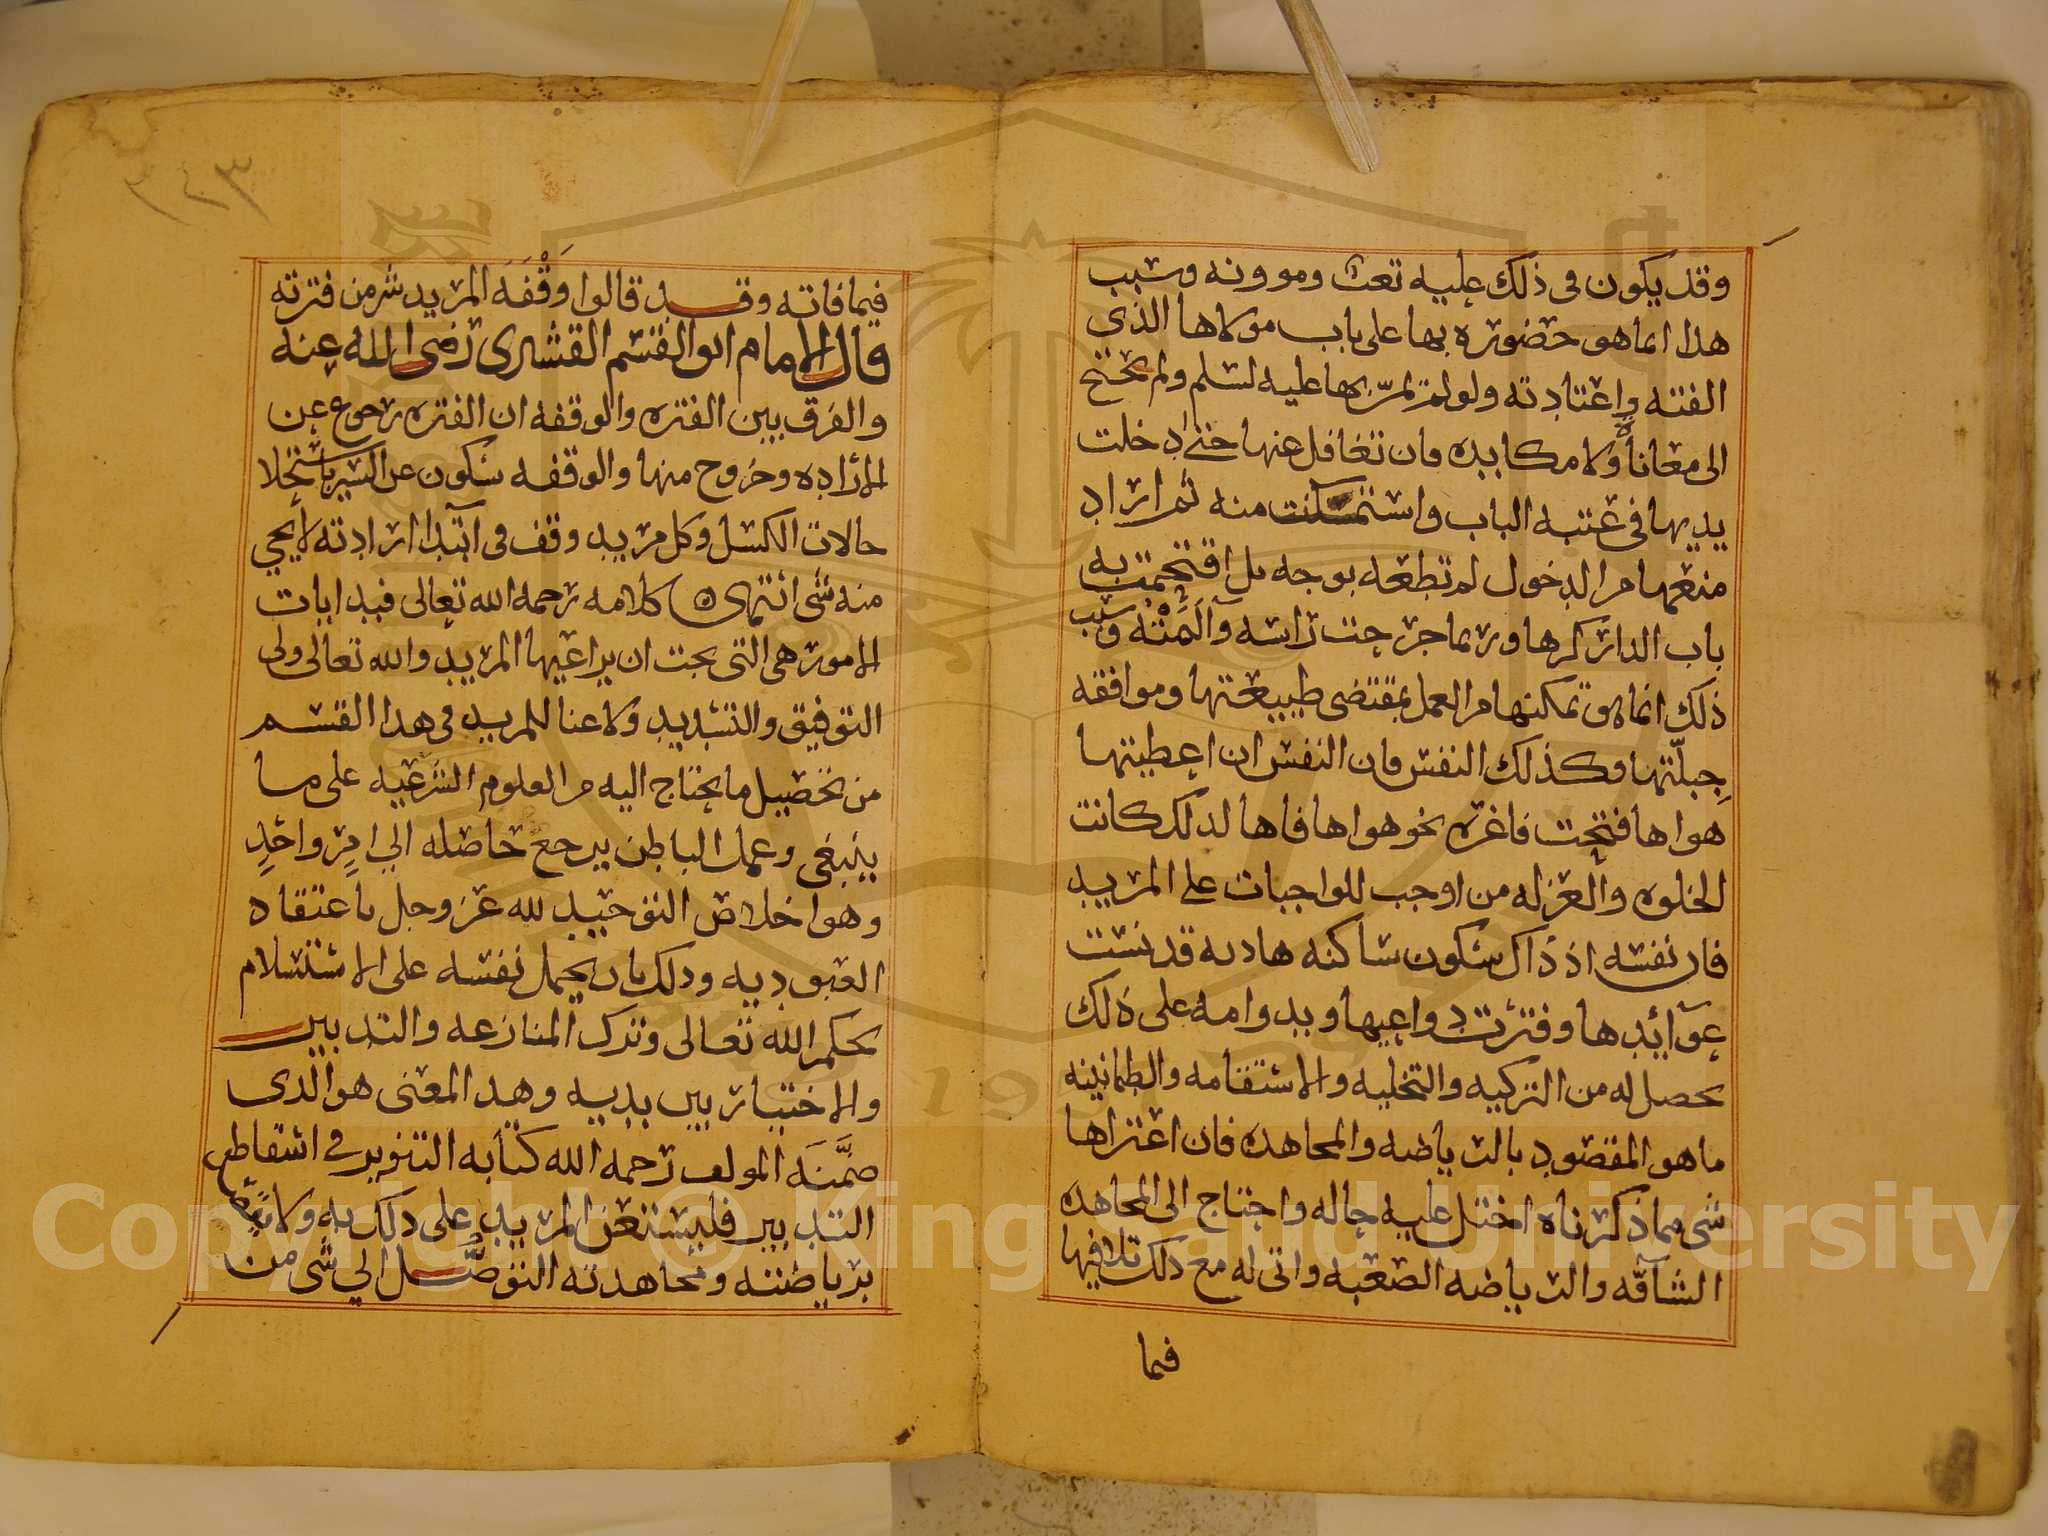 وقد يكون فى ذلك عليه تعب ومو ونه وسبب
هذا انما هو حضوره بها على باب مولاها الذى
الفته واعتادته ولو لم تمرّ بها عليه لسلم ولم يحتج
الى معاناة ولا مكابده فان تغافل عنها حتى ادخلت
يديها فى عتبه الباب واستمسكنت منه ثم اراد
منعها من الدخول لم تطعه بوجه بل اقتحمت به
باب الدار كرها وربما جرحت راسه وآلمته وسبب
ذلك انما هو تمكنها من العمل بمقتضى طبيعتها وموافقه
جبلّتها وكذلك النفس فان النفس ان اعطيتها
هواها فتحت فاغرة نحو هواها فاها لذلك كانت
الخلوه والعزله من اوجب للواجبات على المريد
فان نفسه اذ ذاك سكون ساكنه هاديه قد نسيت
عوآئدها وفترت دواعيها وبدوامه على ذلك
يحصل له من التزكيه والتحليه والاستقامه والطمانينه
ما هو المقصود بالرياضه والمجاهده فان اعتراها
شى مما ذكرناه اختل عليه حاله واحتاج الى المجاهده
الشآقّه والرياضه الصعبه وانى له مع ذلك تلافيها
فيما
٣٤٣
فيما فاته وقد قالوا وَقْفَة المريد شر من فترته
قال الامام ابو القسم القشيرى رضى الله عنه
والفرق بين الفتره والوقفه ان الفتره رجوع عن
الارادة وخروج منها والوقفه سكون عن السير باستحلا
حالات الكسل وكل مريد وقف فى ابتدا ارادته لا يجي
منه شى انتهى ه كلامه رحمه الله تعالى فبدايات
الامور هى التى يجب ان يراعيها المريد والله تعالى ولى
التوفيق والتسديد ولا عنا للمريد فى هذا القسم
من تحصيل ما يحتاج اليه من العلوم الشرعيه على ما
ينبغى وعمل الباطن يرجع حاصله الى امرٍ واحدٍ
وهو اخلاص التوحيد لله عز وجل باعتقاد
العبوديه وذلك بان يحمل نفسه على الاستسلام
لحكم الله تعالى وترك المنازعه والتدبير
والاختيار بين يديه وهذا المعنى هو الذى
ضمَّنَه المولف رحمه الله كتابه التنوير فى اسقاط
التدبير فليستعن المريد على ذلك به ولا
برياضته ومجاهدته التوصُّل الى شى من
Copyright © King Saud University
1957